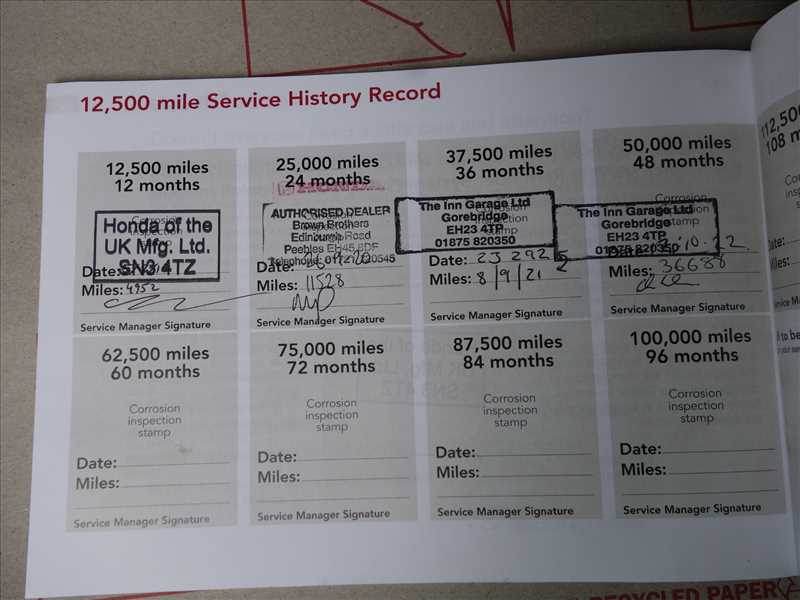 12,500 mile Service History Record
12,500 miles
12 months
Corrosion
Honda of the
UK Mfg. Ltd.
SN3 4TZ
Date:
Miles: 4952
Service Manager Signature
25,000 miles
24 months
AUTHORISED DEALER
Brown Brothers
Edinburgh Road
Peebles EH45 8DF
Telephone 01721 720545
Date:
Miles: 11528
Service Manager Signature
37,500 miles
36 months
The Inn Garage Ltd
Gorebridge
EH23 4TP
01875 820350
stamp
Date: 23 292
Miles: 8/9/21
Service Manager Signature
50,000 miles
48 months
Corrosion
inspection
stamp
The Inn Garage Ltd
Gorebridge
EH23 4TP
01875 820350
10.22
Miles: 36688
Service Manager Signature
62,500 miles
60 months
Corrosion
inspection
stamp
Date:
Miles:
Service Manager Signature
75,000 miles
72 months
Corrosion
inspection
stamp
Date:
Miles:
Service Manager Signature
87,500 miles
84 months
Corrosion
inspection
stamp
Date:
Miles:
Service Manager Signature
100,000 miles
96 months
Corrosion
inspection
stamp
Date:
Miles:
Service Manager Signature
112,500
108 m
Date:
Miles:
Service Man
d to be
RECYCLED PAPER